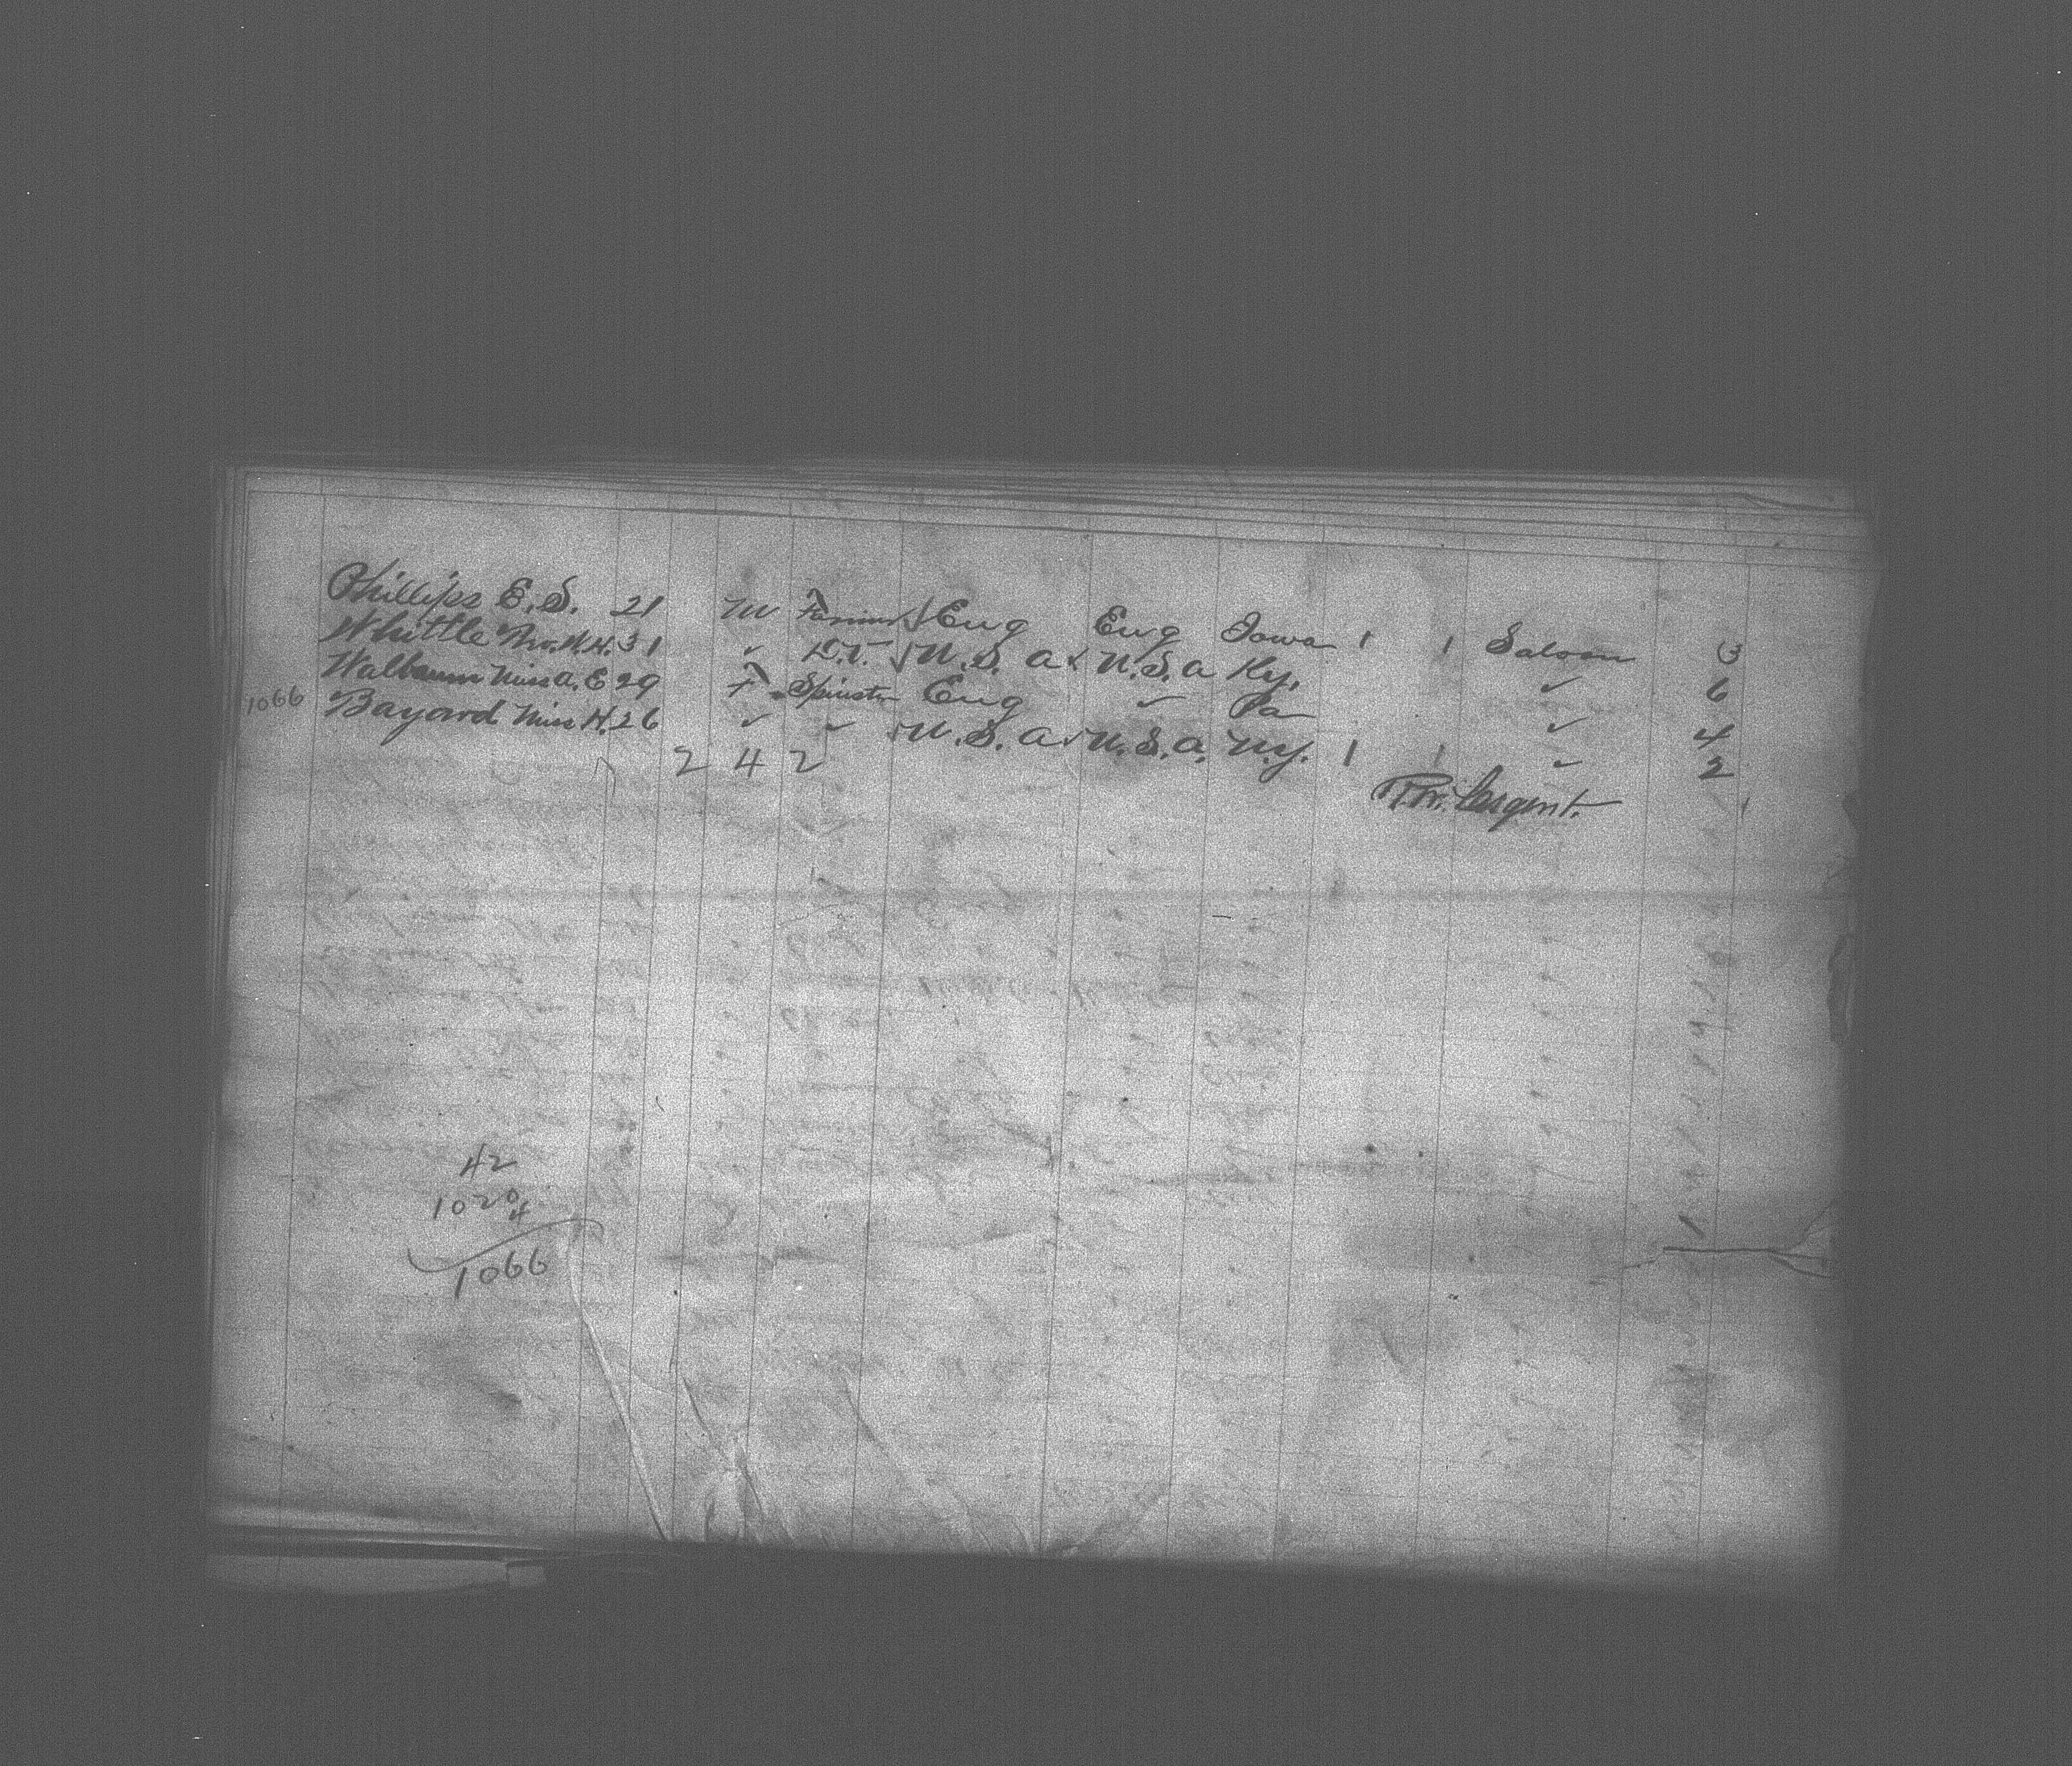 Phillips E. S. 21 M Farmer √ Eng Eng Iowa 1 1 Saloon 3
Whittle W. H. 31 ✓ √ U. S. A ✓ U. S. A Ky. ✓ 6
Walbaum Miss A. E 29 F Spinster Eng ✓ Pa ✓ 4
1066 Bayard Miss H. 26 ✓ ✓ √ U. S. A ✓ U. S. A. N.Y. 1 1 ✓ 2
2 4 2
Sargent.
42
1020
4
1066